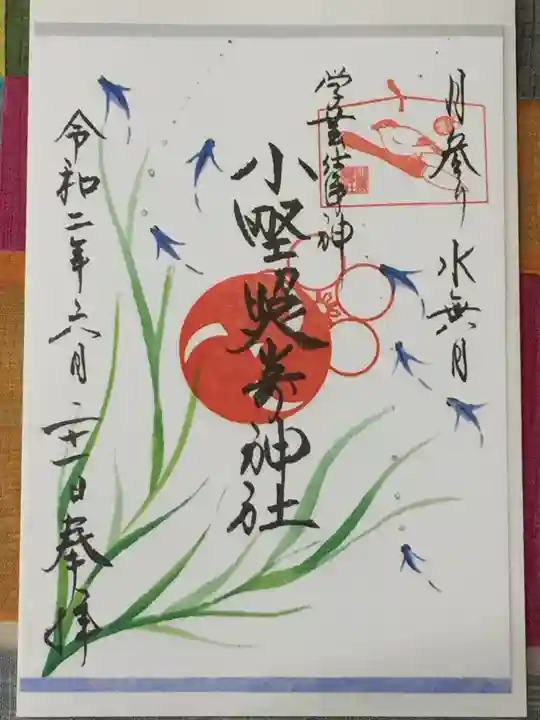 月参り 水無月
学業の神
小野照崎神社
令和二年六月二十一日 奉拝